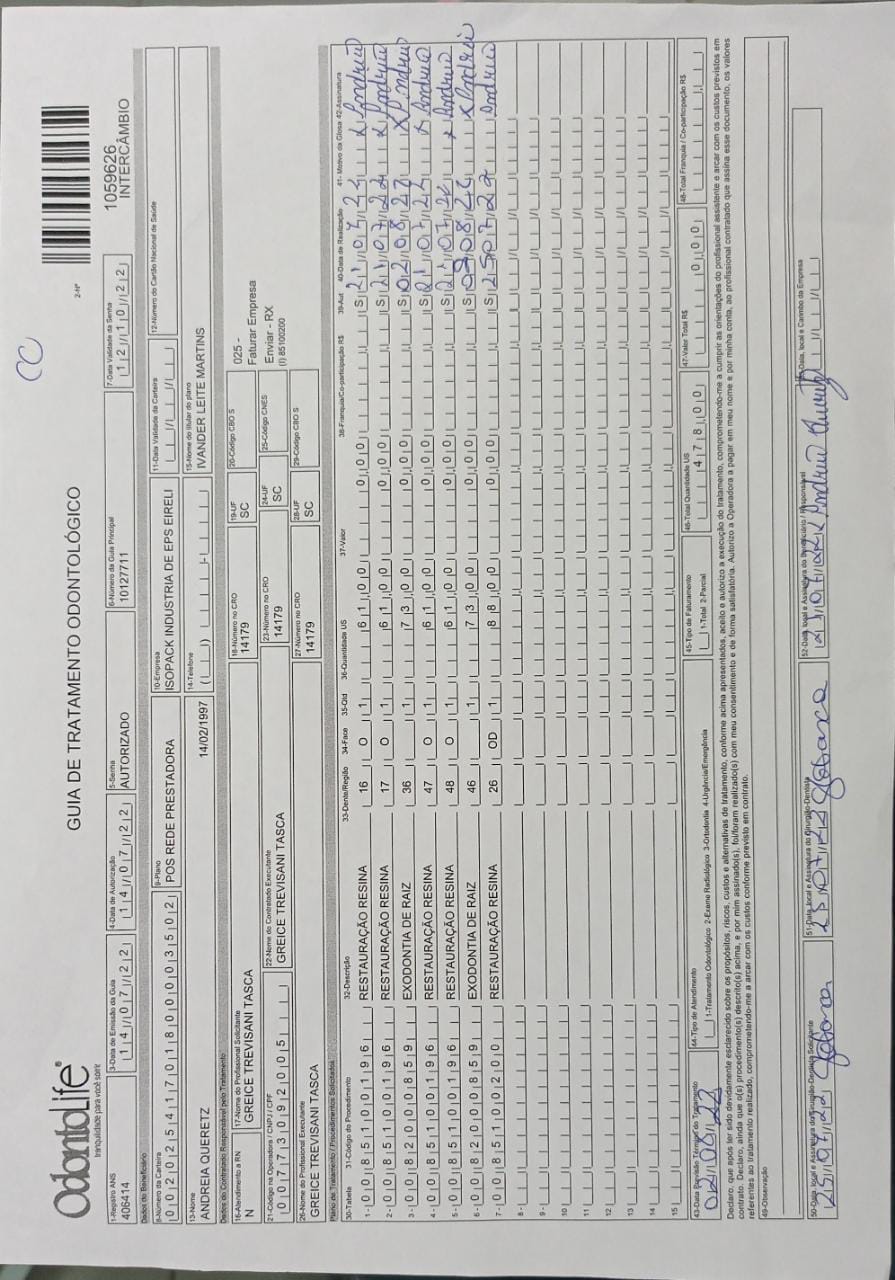 CC
OdontoLife®
tranquilidade para você sorrir
GUIA DE TRATAMENTO ODONTOLÓGICO
2-Nº
1059626
INTERCÂMBIO
1-Registro ANS
406414
3-Data de Emissão da Guia
14/07/22
4-Data de Autorização
14/07/22
5-Senha
AUTORIZADO
6-Número da Guia Principal
10127711
7-Data Validade da Senha
12/10/22
Dados do Beneficiário
8-Número da Carteira
00202541701800003502
9-Plano
POS REDE PRESTADORA
10-Empresa
ISOPACK INDUSTRIA DE EPS EIRELI
11-Data Validade da Carteira
12-Número do Cartão Nacional de Saúde
13-Nome
ANDREIA QUERETZ
14/02/1997
14-Telefone
15-Nome do titular do plano
IVANDER LEITE MARTINS
Dados do Contratado Responsável pelo Tratamento
16-Atendimento a RN
N
17-Nome do Profissional Solicitante
GREICE TREVISANI TASCA
18-Número no CRO
14179
19-UF
SC
20-Código CBO S
025 -
Faturar Empresa
Enviar - RX
(I) 85100200
21-Código na Operadora / CNPJ / CPF
00773092005
22-Nome do Contratado Executante
GREICE TREVISANI TASCA
23-Número no CRO
14179
24-UF
SC
25-Código CNES
26-Nome do Profissional Executante
GREICE TREVISANI TASCA
27-Número no CRO
14179
28-UF
SC
29-Código CBO S
Plano de Tratamento / Procedimentos Solicitados
30-Tabela 31-Código do Procedimento 32-Descrição 33-Dente/Região 34-Face 35-Qtd 36-Quantidade US 37-Valor 38-Franquia/Co-participação R$ 39-Aut 40-Data de Realização 41- Motivo da Glosa 42-Assinatura
1 - 00 85100196 RESTAURAÇÃO RESINA 16 O 1 61,00 0,00 S 21/07/22 x Andreia
2 - 00 85100196 RESTAURAÇÃO RESINA 17 O 1 61,00 0,00 S 21/07/22 x Andreia
3 - 00 82000859 EXODONTIA DE RAIZ 36 1 73,00 0,00 S 02/08/22 x Andreia
4 - 00 85100196 RESTAURAÇÃO RESINA 47 O 1 61,00 0,00 S 21/07/22 x Andreia
5 - 00 85100196 RESTAURAÇÃO RESINA 48 O 1 61,00 0,00 S 21/07/22 x Andreia
6 - 00 82000859 EXODONTIA DE RAIZ 46 1 73,00 0,00 S 08/22 x Andreia
7 - 00 85100200 RESTAURAÇÃO RESINA 26 OD 1 88,00 0,00 S 25/07/22 Andreia
8 -
9 -
10
11
12
13
14
15
43-Data Previsão Término do Tratamento
44-Tipo de Atendimento
1-Tratamento Odontológico 2-Exame Radiológico 3-Ortodontia 4-Urgência/Emergência
45-Tipo de Faturamento
1-Total 2-Parcial
46-Total Quantidade US
478,00
47-Valor Total R$
0,00
48-Total Franquia / Co-participação R$
Declaro, que após ter sido devidamente esclarecido sobre os propósitos, riscos, custos e alternativas de tratamento, conforme acima apresentados, aceito e autorizo a execução do tratamento, comprometendo-me a cumprir as orientações do profissional assistente e arcar com os custos previstos em
contrato. Declaro, ainda que o(s) procedimento(s) descrito(s) acima, e por mim assinado(s), foi/foram realizado(s) com meu consentimento e de forma satisfatória. Autorizo a Operadora a pagar em meu nome e por minha conta, ao profissional contratado que assina esse documento, os valores
referentes ao tratamento realizado, comprometendo-me a arcar com os custos conforme previsto em contrato.
49-Observação
50-Data, local e Assinatura do Cirurgião-Dentista Solicitante
25/07/22
51-Data, local e Assinatura do Cirurgião-Dentista
25/07/22
52-Data, local e Assinatura do Beneficiário / Responsável
21/07/22 x Andreia
53-Data, local e Carimbo da Empresa